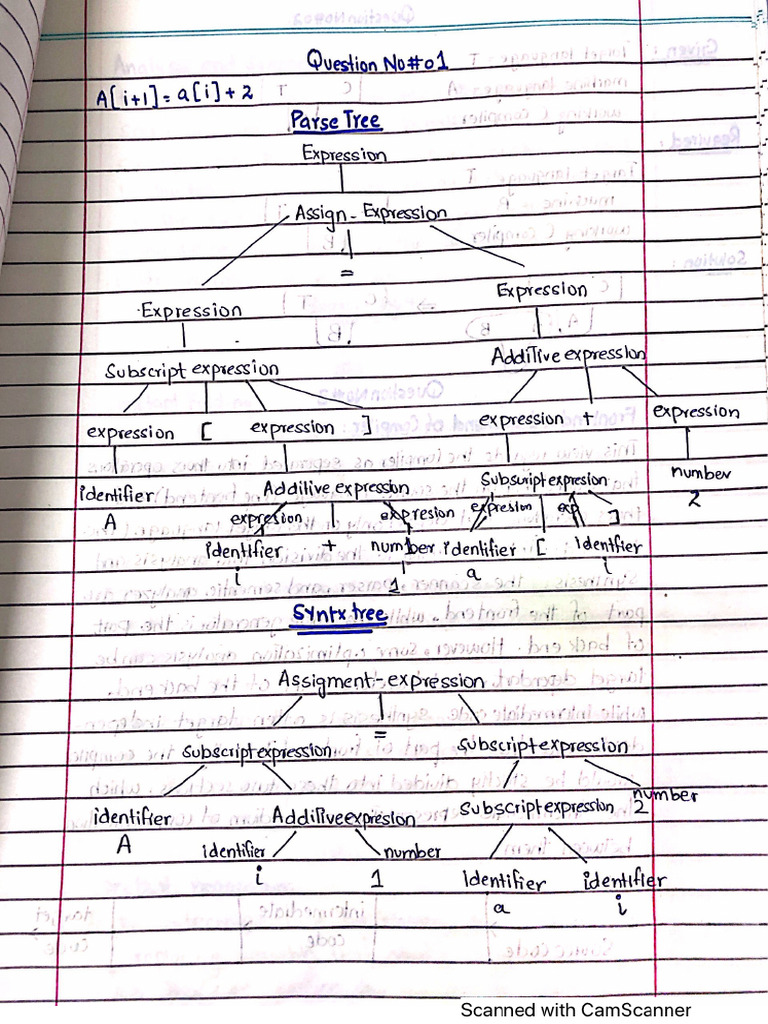 Question No#01
A[i+1] = a[i]+2
Parse Tree
Expression
Assign-Expression
=
Expression Expression
Subscript expression Additive expression
expression [ expression ] expression + expression
identifier Additive expression Subscript expresion number
A expresion expresion expresion exp ] 2
identifier + number identifier [ identifier
i 1 a i
Syntx tree
Assigment-expression
=
subscriptexpression subscriptexpression
identifier Additiveexpresion Subscriptexpression number
A 2
identifier number
i 1 identifier identifier
a i
Scanned with CamScanner